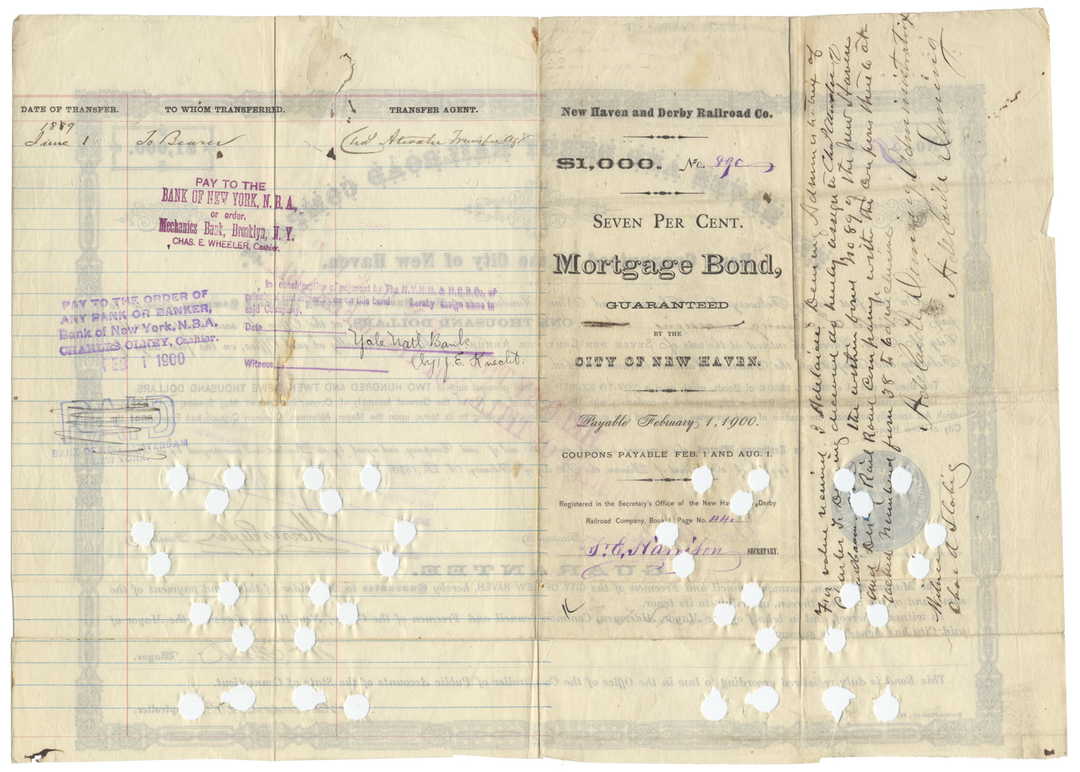 DATE OF TRANSFER. TO WHOM TRANSFERRED. TRANSFER AGENT.
1889
June 1 To Bearer Chas Atwater Transfer Agt
PAY TO THE
BANK OF NEW YORK, N.B.A.,
or order.
Mechanics Bank, Brooklyn, N.Y.
CHAS. E. WHEELER, Cashier.
PAY TO THE ORDER OF
ANY BANK OR BANKER,
Bank of New York, N.B.A.
CHARLES OLNEY, Cashier.
FEB 1 1900
In consideration of payment by The N.Y.N.H. & H.R.R. Co. of
on this bond hereby assign same to
said Company.
Date
Yale Natl Bank
Witness by J. E. Knecht.
New Haven and Derby Railroad Co.
$1,000. No. 890
SEVEN PER CENT.
Mortgage Bond,
GUARANTEED
BY THE
CITY OF NEW HAVEN.
Payable February 1, 1900.
COUPONS PAYABLE FEB. 1 AND AUG. 1.
Registered in the Secretary's Office of the New Derby
Railroad Company, Book Page No. 44
S. E. Harrison SECRETARY.
For value received I Adelaide Deming Administratrix of
Charles F. Deming deceased do hereby assign to
the within bond No 890 of the New Haven
and Derby Rail Road Company, with the coupons thereto at-
tached numbered from 38 to
Adelaide Deming Administratrix
Adelaide Deming
Witness